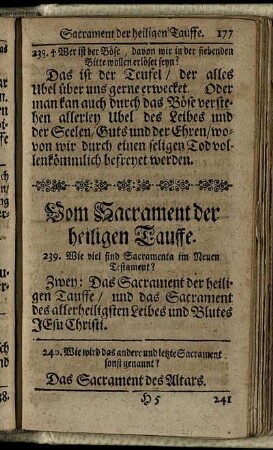 Sacrament der heiligen Tauffe. 177
238. † Wer ist der Böse, davon wir in der siebenden
Bitte wollen erlöset seyn?
Das ist der Teufel / der alles
Ubel über uns gerne erwecket. Oder
man kan auch durch das Böse verste-
hen allerley Ubel des Leibes und
der Seelen, Guts und der Ehren/wo-
von wir durch einen seligen Tod vol-
lenkömmlich befreyet werden.
Vom Sacrament der
heiligen Tauffe.
239. Wie viel sind Sacramenta im Neuen
Testament?
Zwey: Das Sacrament der heili-
gen Tauffe/ und das Sacrament
des allerheiligsten Leibes und Blutes
JEsu Christi.
240. Wie wird das andere und letzte Sacrament
sonst genannt?
Das Sacrament des Altars.
H 5 241